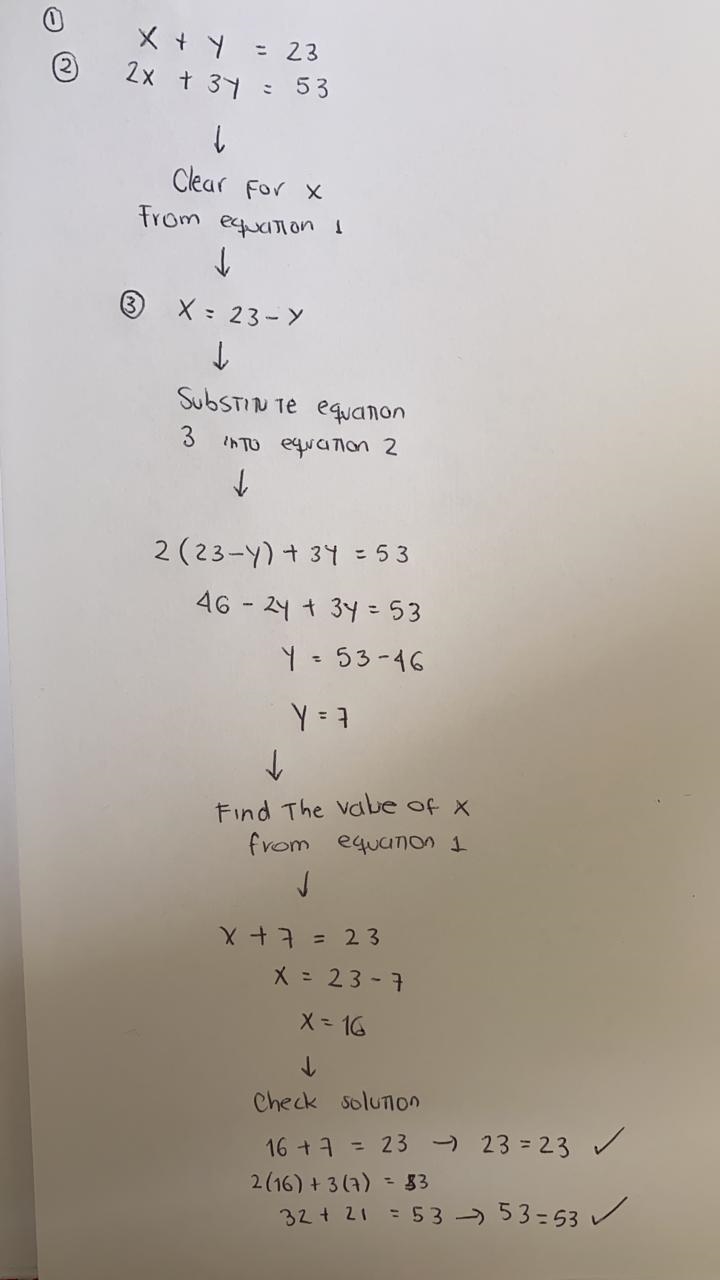 ① x + y = 23
② 2x + 3y = 53
↓
Clear For x
From equation 1
↓
③ x = 23 - y
↓
Substitute equation
3 into equation 2
↓
2(23-y) + 3y = 53
46 - 2y + 3y = 53
y = 53 - 46
y = 7
↓
Find The value of x
from equation 1
↓
x + 7 = 23
x = 23 - 7
x = 16
↓
Check solution
16 + 7 = 23 → 23 = 23 ✓
2(16) + 3(7) = 53
32 + 21 = 53 → 53 = 53 ✓